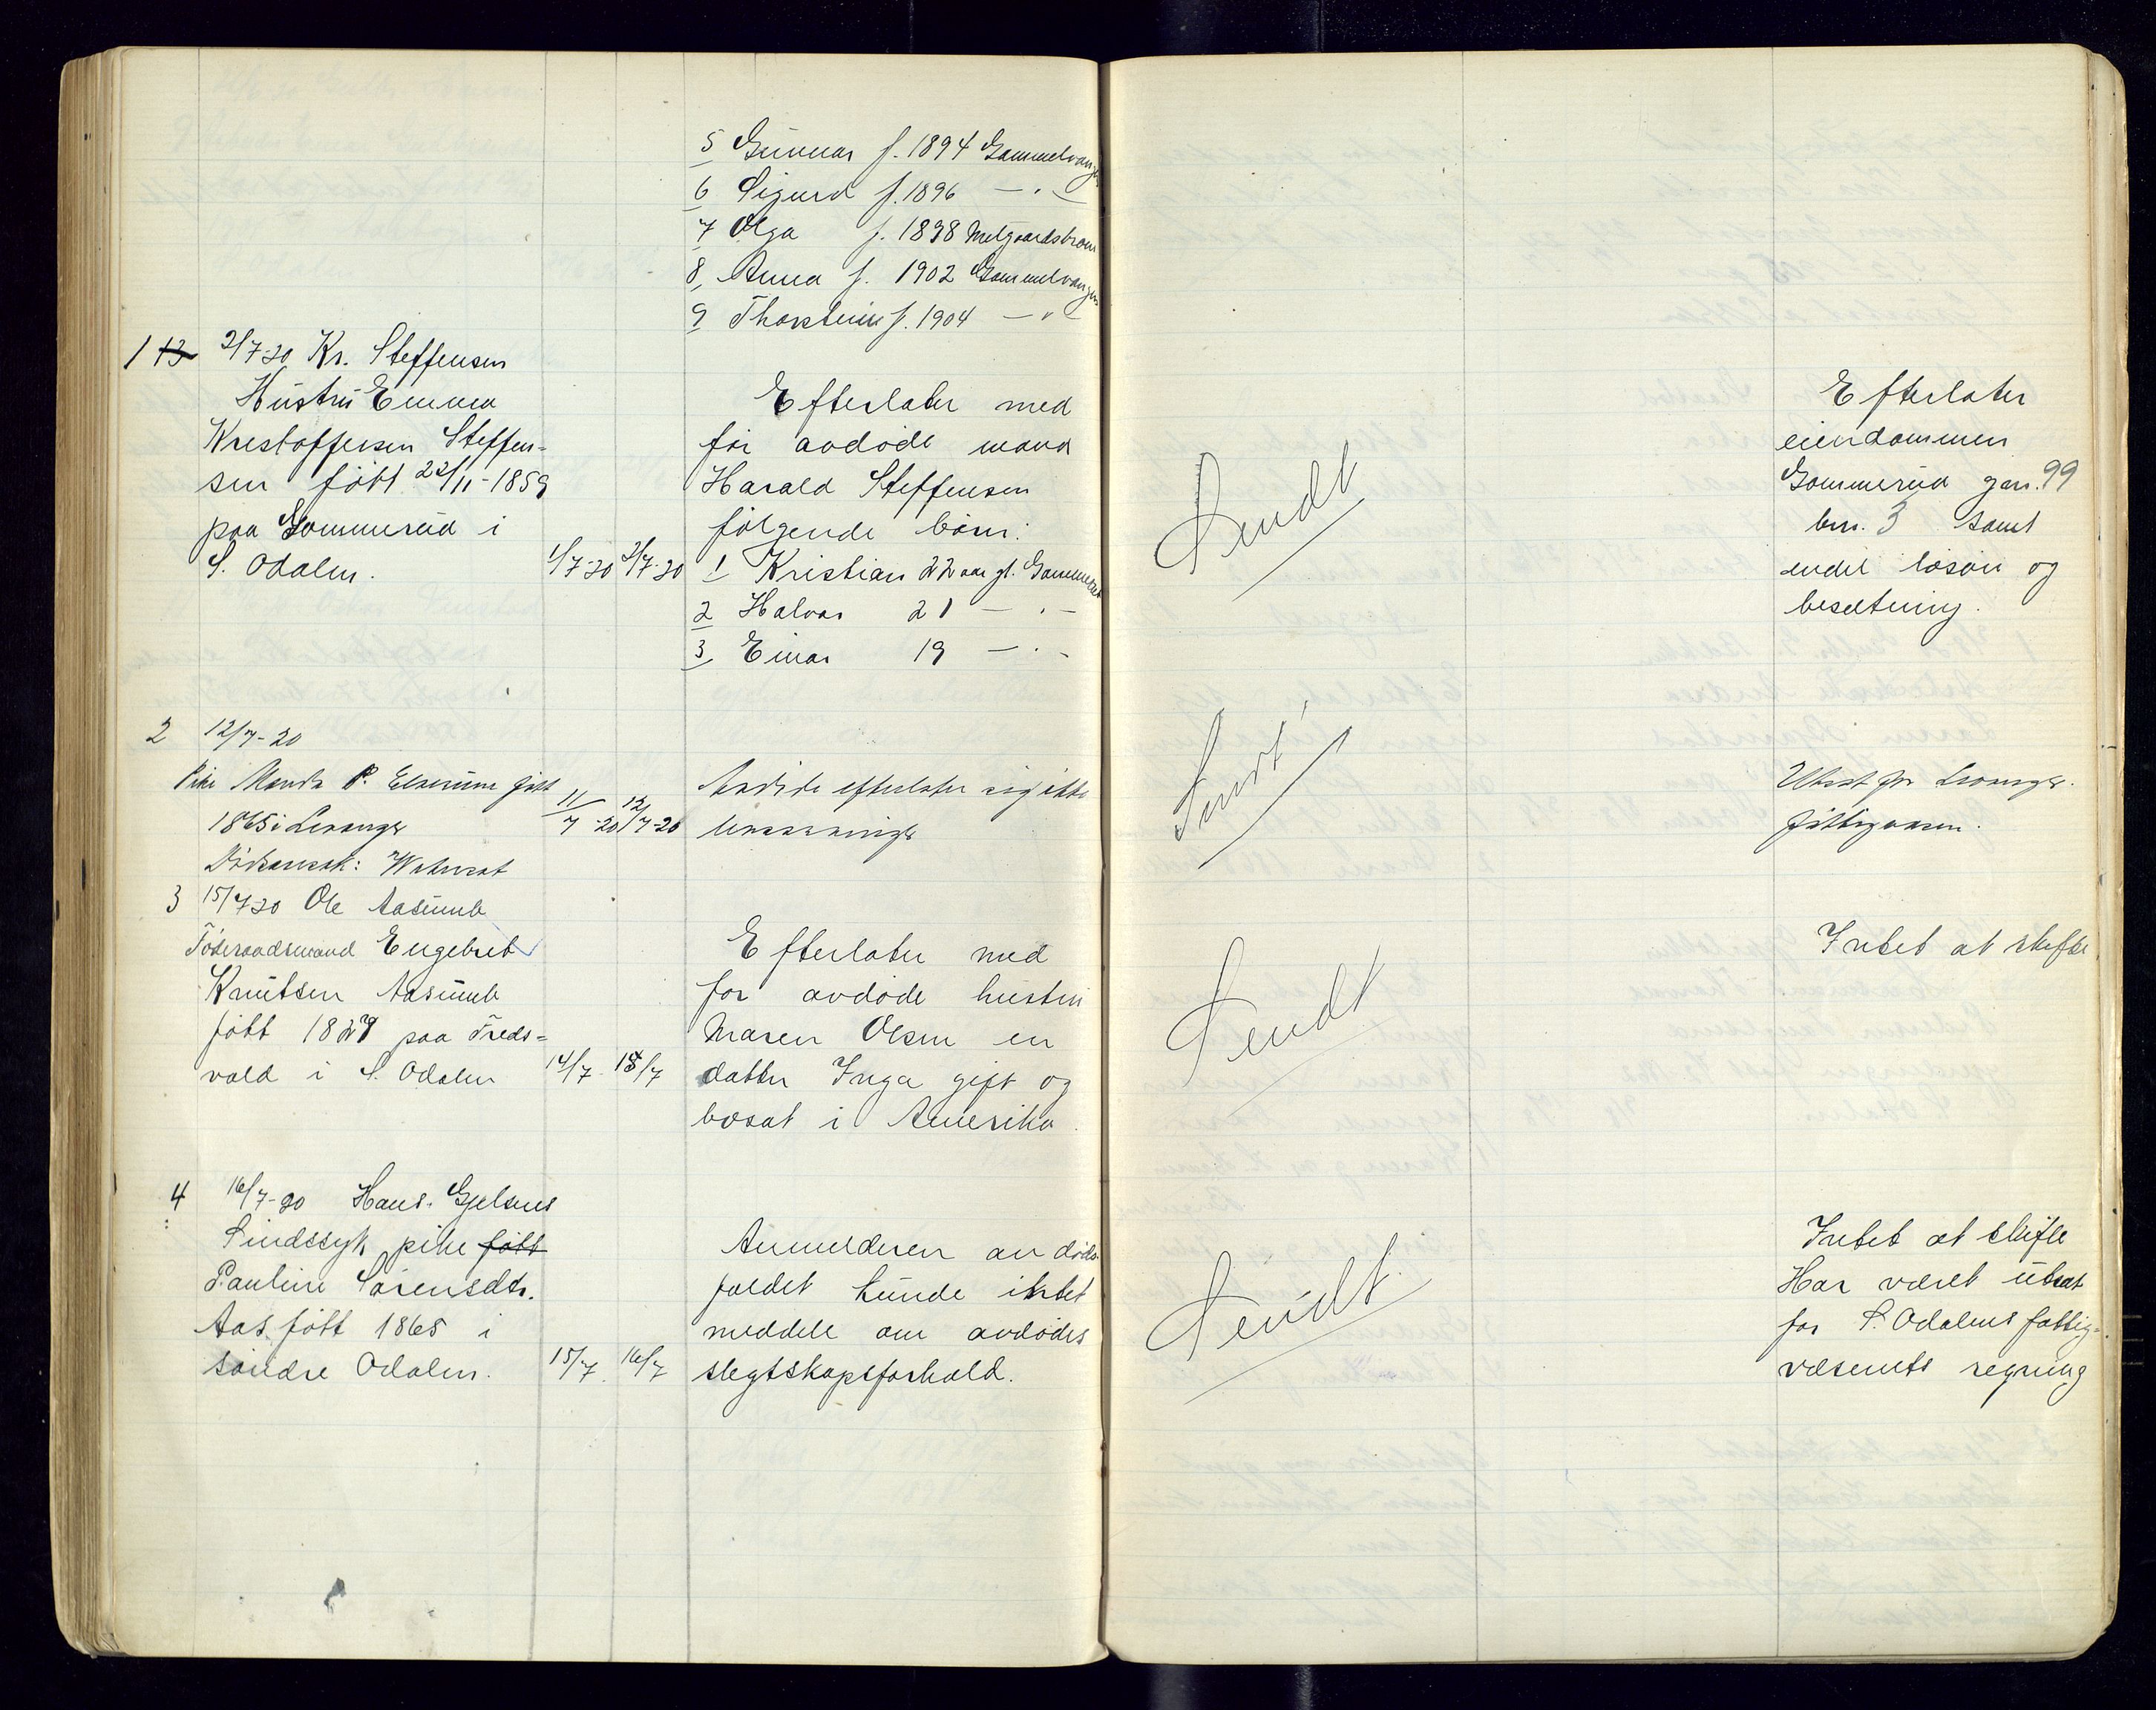 5 Gunnar f. 1894 Gammelvangen
6 Sigurd f. 1896 — " —
7 Olga f. 1898
8, Anna f. 1902 Gammelvangen
9 Thorstein f. 1904 — " —
1 13 2/7-20 Kr. Steffensen
Hustru Emma
Krestoffersen Steffen-
sen født 22/11-1859
paa Gommerud i
S. Odalen.
1/7-20 2/7-20
Efterlater med
før avdøde mand
Harald Steffensen
følgende børn:
1 Kristian 22 aar gl. Gommerud
2 Halvor 21 — " —
3 Einar 19 — " —
Sendt
Efterlater
eiendommen
Gommerud gnr. 99
bnr. 3 samt
endel løsøre og
besetning.
2 12/7-20
Pike Manda P. født
1865 i Levanger
Dødsaarsak:
11/7-20 12/7-20
Avdøde efterlater sig ikke
Sendt
Utsat for Levanger
fattigvæsen.
3 15/7 20 Ole Aasumb
Føderaadsmand Engebret
Knutsen Aasumb
født 1827 paa Freds=
vold i S. Odalen
14/7 15/7
Efterlater med
før avdøde hustru
Maren Olsen en
datter Inga gift og
bosat i Amerika.
Sendt
Intet at skifte
4 16/7-20 Hans Gjelsnes
Sindssyk pike født
Pauline Sørensdtr.
Aas født 1865 i
søndre Odalen.
15/7. 16/7
Anmelderen av døds-
faldet kunde intet
meddele om avdødes
slegtskapsforhold.
Sendt
Intet at skifte
Har været utsat
for S. Odalens fattig=
væsenets regning